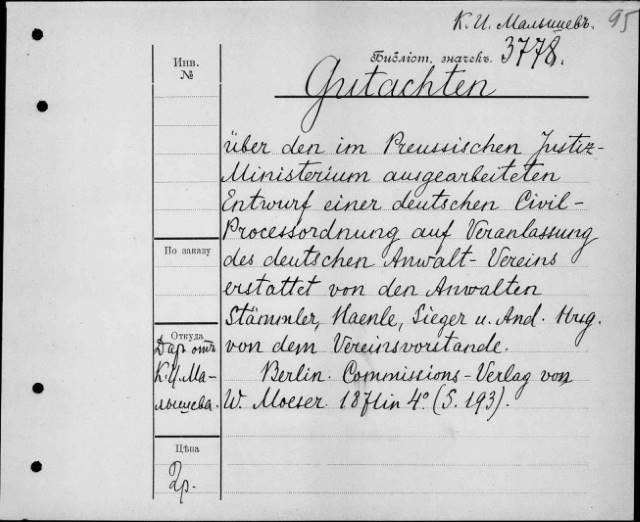 К. И. Малышевъ. 95
Инв.
№
Библіот. значекъ. 3778.
Gutachten
über den im Preussischen Justiz-
Ministerium ausgearbeiteten
Entwurf einer deutschen Civil-
Processordnung auf Veranlassung
des deutschen Anwalt-Vereins
erstattet von den Anwalten
Stämmler, Haenle, Sieger u. And. Hrsg.
von dem Vereinsvorstande.
Berlin. Commissions-Verlag von
W. Moeser. 1871 in 4° (S. 193).
По заказу
Откуда
Даръ отъ
К. И. Ма-
лышева.
Цѣна
2 р.